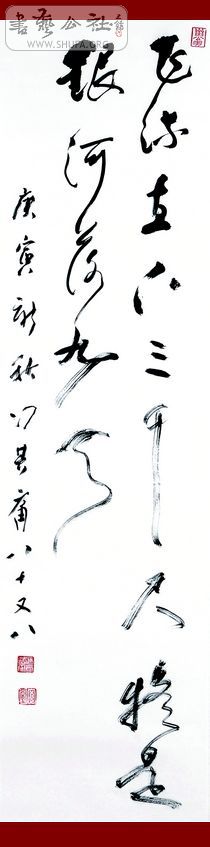 書藝公社
WWW.SHUFA.ORG
飛流直下三千尺疑是
銀河落九天
庚寅新秋馮其庸八十又八